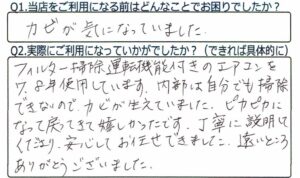 Q1.当店をご利用になる前はどんなことでお困りでしたか？
カビが気になっていました。
Q2.実際にご利用になっていかがでしたか？（できれば具体的に）
フィルター掃除運転機能付きのエアコンを
7、8年使用しています。内部は自分でも掃除
できないので、カビが生えていました。ピカピカに
なって戻ってきて嬉しかったです。丁寧に説明して
くださり、安心してお任せできました。遠いところ
ありがとうございました。